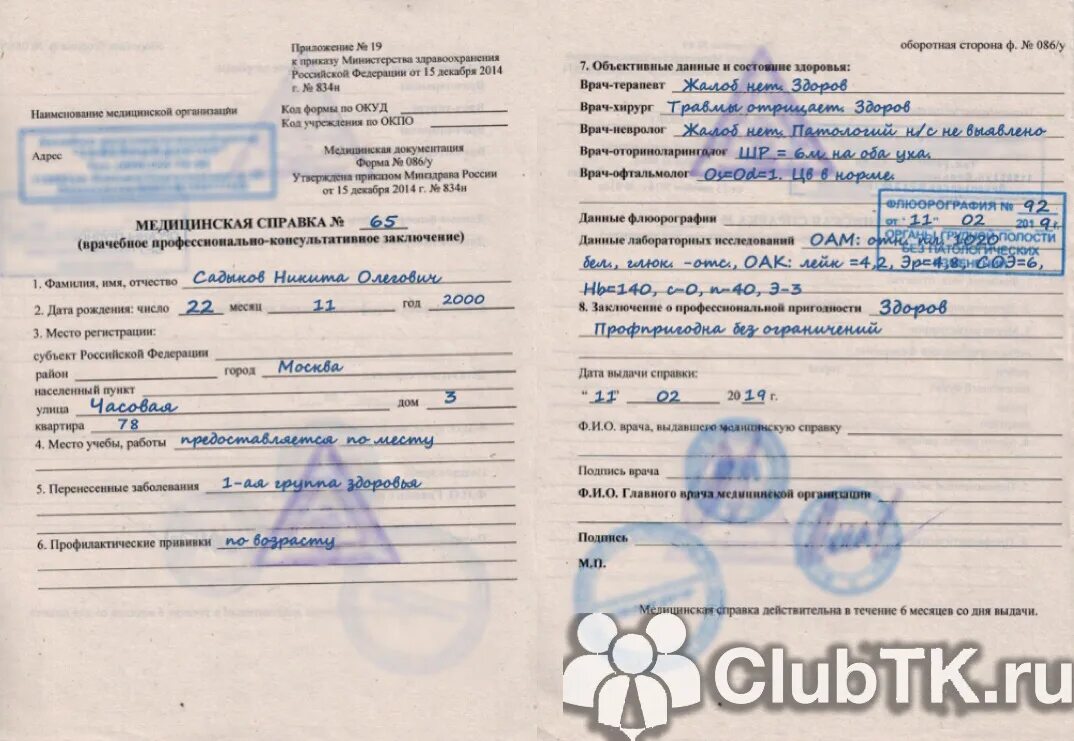 Приложение № 19
к приказу Министерства здравоохранения
Российской Федерации от 15 декабря 2014
г. № 834н
Наименование медицинской организации
Код формы по ОКУД
Код учреждения по ОКПО
Адрес
Медицинская документация
Форма № 086/у
Утверждена приказом Минздрава России
от 15 декабря 2014 г. № 834н
МЕДИЦИНСКАЯ СПРАВКА № 65
(врачебное профессионально-консультативное заключение)
1. Фамилия, имя, отчество Садыков Никита Олегович
2. Дата рождения: число 22 месяц 11 год 2000
3. Место регистрации:
субъект Российской Федерации
район город Москва
населенный пункт
улица Часовая дом 3
квартира 78
4. Место учебы, работы предоставляется по месту
5. Перенесенные заболевания 1-ая группа здоровья
6. Профилактические прививки по возрасту
оборотная сторона ф. № 086/у
7. Объективные данные и состояние здоровья:
Врач-терапевт Жалоб нет. Здоров
Врач-хирург Травмы отрицает. Здоров
Врач-невролог Жалоб нет. Патологий н/с не выявлено
Врач-оториноларинголог ШР = 6м на оба уха.
Врач-офтальмолог Os=Od=1. Цв в норме.
ФЛЮОРОГРАФИЯ № 92
от "11" 02 2019 г.
ОРГАНЫ ГРУДНОЙ ПОЛОСТИ
БЕЗ ПАТОЛОГИЧЕСКИХ
Данные флюорографии
Данные лабораторных исследований ОАМ: отн. пл. 1020
бел., глюк. -отс., ОАК: лейк =4,2, Эр=4,8, СОЭ=6,
Hb=140, с-0, п-40, Э-3
8. Заключение о профессиональной пригодности Здоров
Профпригодна без ограничений
Дата выдачи справки:
"11" 02 2019 г.
Ф.И.О. врача, выдавшего медицинскую справку
Подпись врача
Ф.И.О. Главного врача медицинской организации
Подпись
М.П.
Медицинская справка действительна в течение 6 месяцев со дня выдачи.
ClubTK.ru